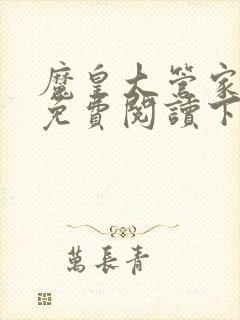 魔皇大管家
免費閱讀下
萬長青